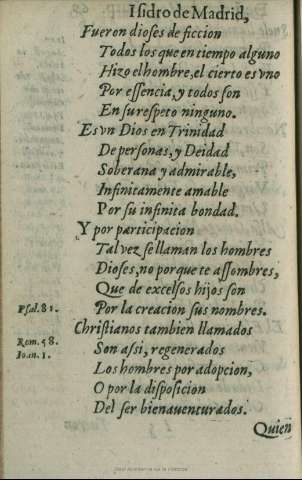 Isidro de Madrid,
Fueron dioses de ficcion
Todos los que en tiempo alguno
Hizo el hombre, el cierto es vno
Por essencia, y todos son
En su respeto ninguno.
Es vn Dios en Trinidad
De personas, y Deidad
Soberana y admirable,
Infinitamente amable
Por su infinita bondad.
Y por participacion
Tal vez se llaman los hombres
Dioses, no porque te assombres,
Que de excelsos hijos son
Psal. 81. Por la creacion sus nombres.
Christianos tambien llamados
Rom. 58. Son assi, regenerados
Ioan. 1. Los hombres por adopcion,
O por la disposicion
Del ser bienauenturados.
Quien